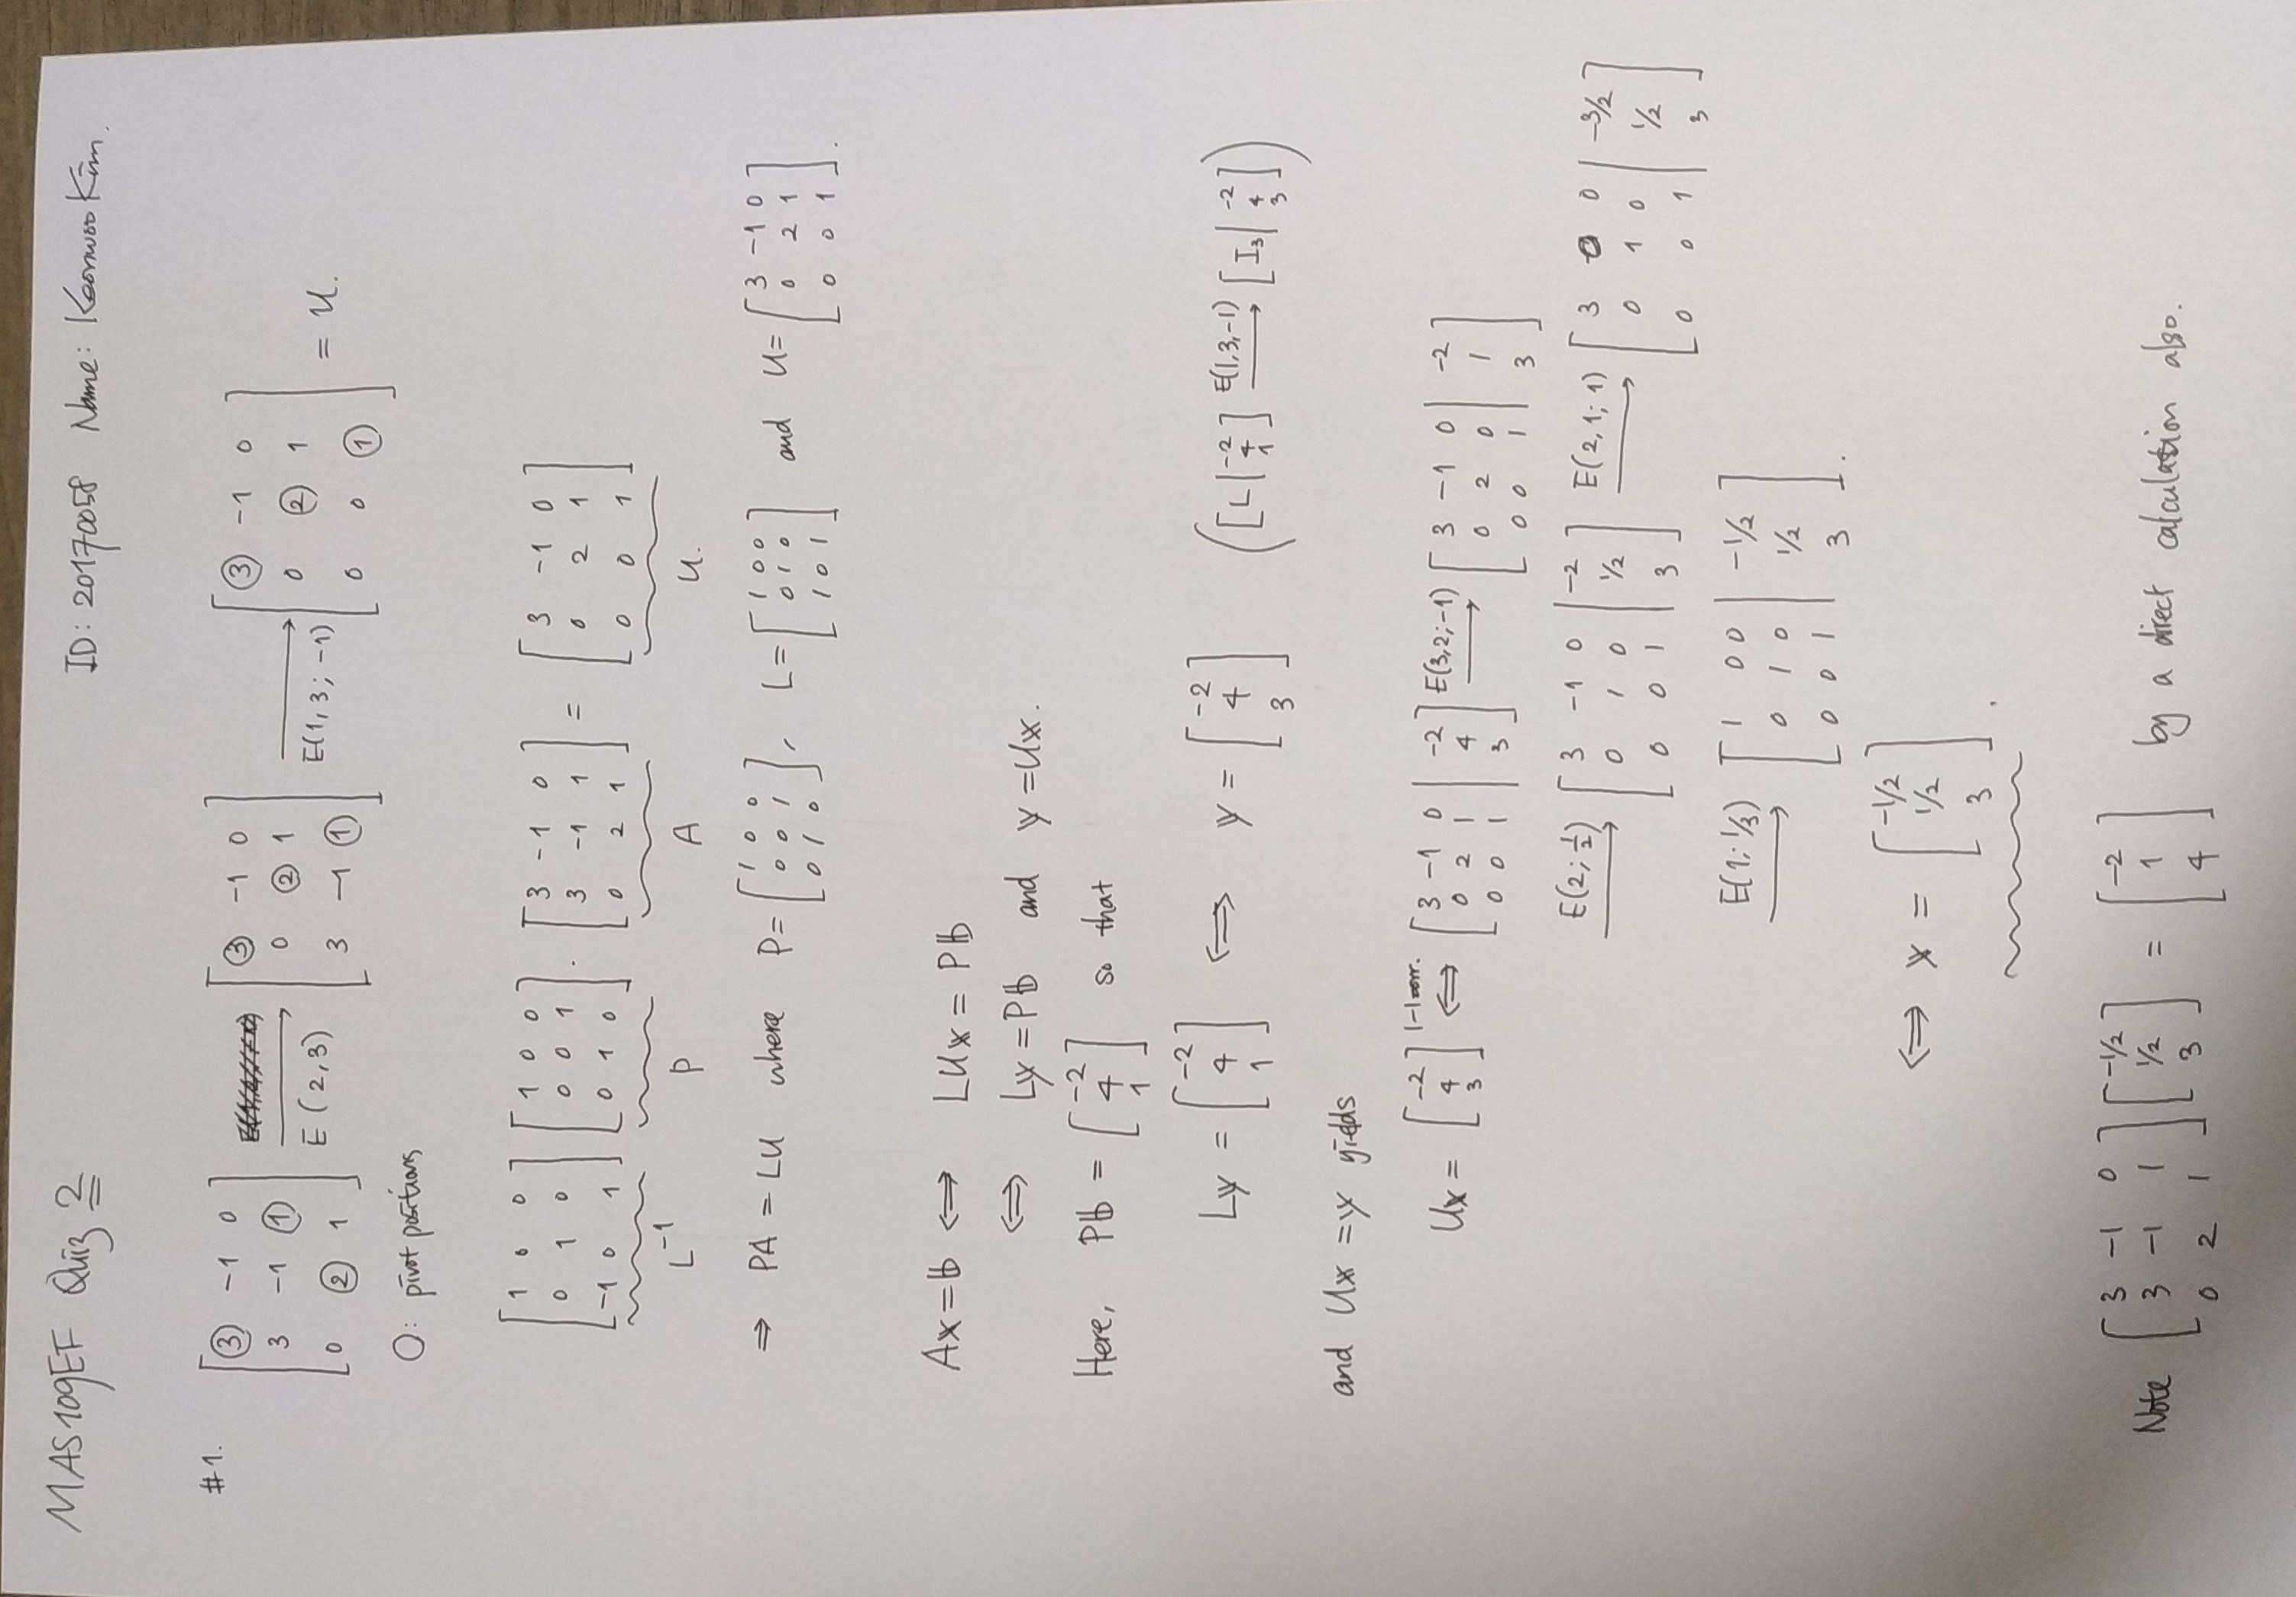 MAS109EF Quiz 2 ID: 20170058 Name: Keonwoo Kim.
#1. [3 -1 0; 3 -1 1; 0 2 1] → E(2,3) [3 -1 0; 0 2 1; 3 -1 1] → E(1,3; -1) [3 -1 0; 0 2 1; 0 0 1] = U.
O: pivot positions
[1 0 0; 0 1 0; -1 0 1] [1 0 0; 0 0 1; 0 1 0] · [3 -1 0; 3 -1 1; 0 2 1] = [3 -1 0; 0 2 1; 0 0 1]
L⁻¹ P A U.
⇒ PA = LU where P = [1 0 0; 0 0 1; 0 1 0], L = [1 0 0; 0 1 0; 1 0 1] and U = [3 -1 0; 0 2 1; 0 0 1].
Ax = b ⇔ LUx = Pb
⇔ Ly = Pb and y = Ux.
Here, Pb = [-2; 4; 1] so that
Ly = [-2; 4; 1] ⇔ y = [-2; 4; 3] ([L | -2; 4; 1] → E(1,3,-1) [I₃ | -2; 4; 3])
and Ux = y yields
Ux = [-2; 4; 3] 1-1 corr. ⇔ [3 -1 0 | -2; 0 2 1 | 4; 0 0 1 | 3] E(3,2; -1) → [3 -1 0 | -2; 0 2 0 | 1; 0 0 1 | 3]
E(2; 1/2) → [3 -1 0 | -2; 0 1 0 | 1/2; 0 0 1 | 3] E(2,1; 1) → [3 0 0 | -3/2; 0 1 0 | 1/2; 0 0 1 | 3]
E(1; 1/3) → [1 0 0 | -1/2; 0 1 0 | 1/2; 0 0 1 | 3].
⇔ x = [-1/2; 1/2; 3].
Note [3 -1 0; 3 -1 1; 0 2 1] [-1/2; 1/2; 3] = [-2; 1; 4] by a direct calculation also.